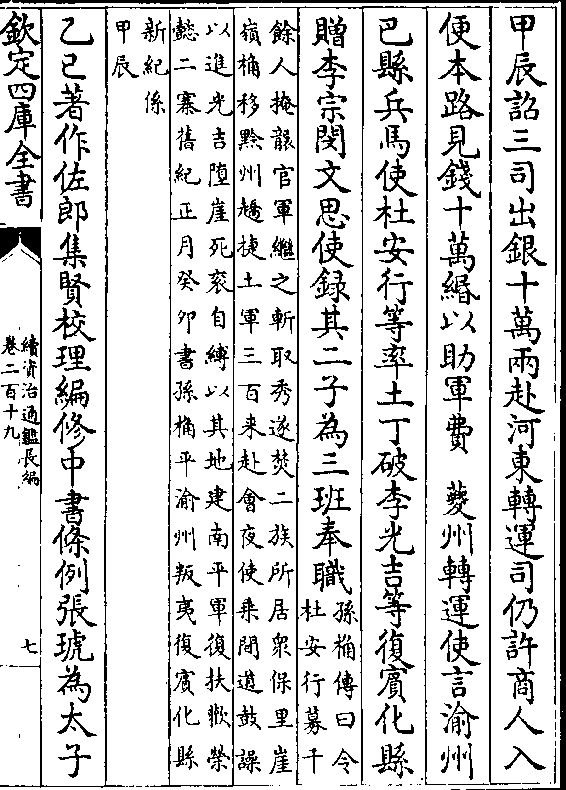 甲辰詔三司出銀十萬兩赴河東轉運司仍許商人入
便本路見錢十萬緡以助軍費　夔州轉運使言渝州
巴縣兵馬使杜安行等率土丁破李光吉等復賓化縣
贈李宗閔文思使録其二子為三班奉職
孫桷傳曰令
杜安行募千
餘人掩襲官軍繼之斬取秀遂焚二族所居衆保里崖
嶺桷移黔州趫捷土軍三百来赴會夜使乗間道鼓譟
以進光吉堕崖死衮自縛以其地建南平軍復扶歡榮
懿二寨舊紀正月癸卯書孫桷平渝州叛夷復賓化縣
新紀係
甲辰
乙已著作佐郎集賢校理編修中書條例張琥為太子
欽定四庫全書
續資治通鑑長編
卷二百十九
七